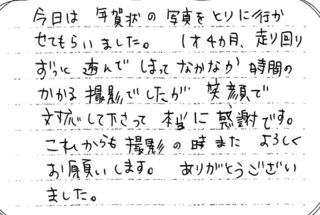 今日は 年賀状の 写真を とりに行か
せてもらいました。 1才4カ月、走り回り
ずっと 遊んで しまって なかなか 時間の
かかる 撮影でしたが 笑顔で
対応して下さって 本当に 感謝です。
これからも 撮影の時また よろしく
お願いします。 ありがとうござい
ました。